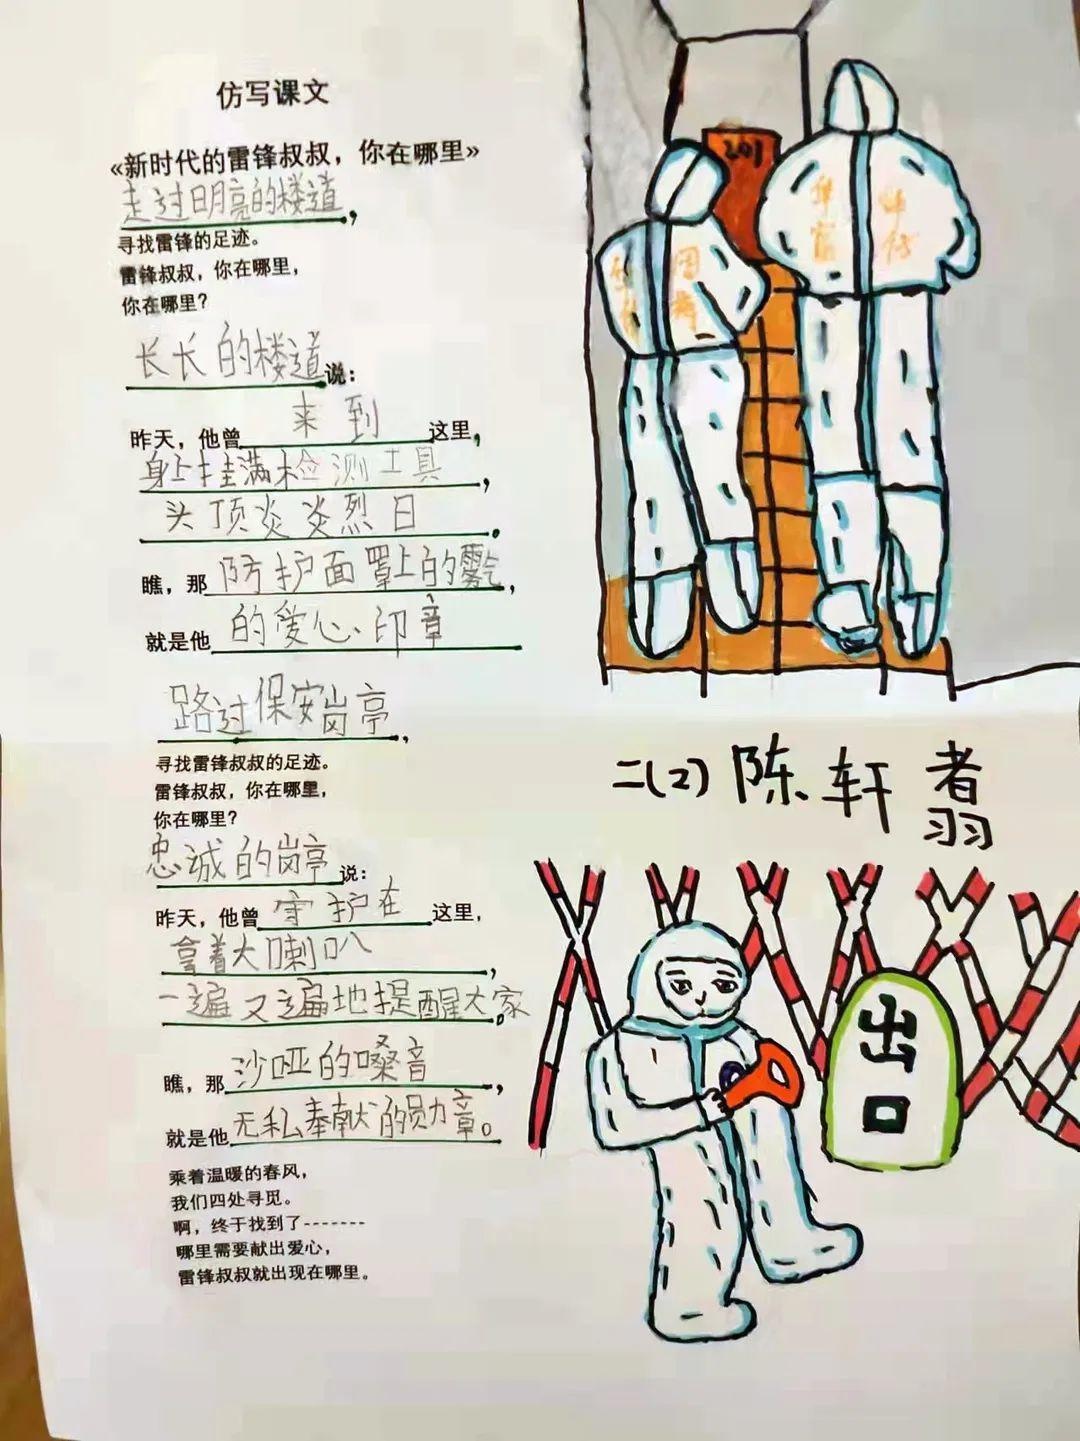 仿写课文
«新时代的雷锋叔叔，你在哪里»
走过明亮的楼道，
寻找雷锋的足迹。
雷锋叔叔，你在哪里，
你在哪里？
长长的楼道说：
昨天，他曾来到这里，
身上挂满检测工具，
头顶炎炎烈日。
瞧，那防护面罩上的雾气，
就是他的爱心印章
路过保安岗亭，
寻找雷锋叔叔的足迹。
雷锋叔叔，你在哪里，
你在哪里？
忠诚的岗亭说：
昨天，他曾守护在这里，
拿着大喇叭，
一遍又一遍地提醒大家。
瞧，那沙哑的嗓音，
就是他无私奉献的勋章。
乘着温暖的春风，
我们四处寻觅。
啊，终于找到了-------
哪里需要献出爱心，
雷锋叔叔就出现在哪里。
201
二(2) 陈轩翥
出口